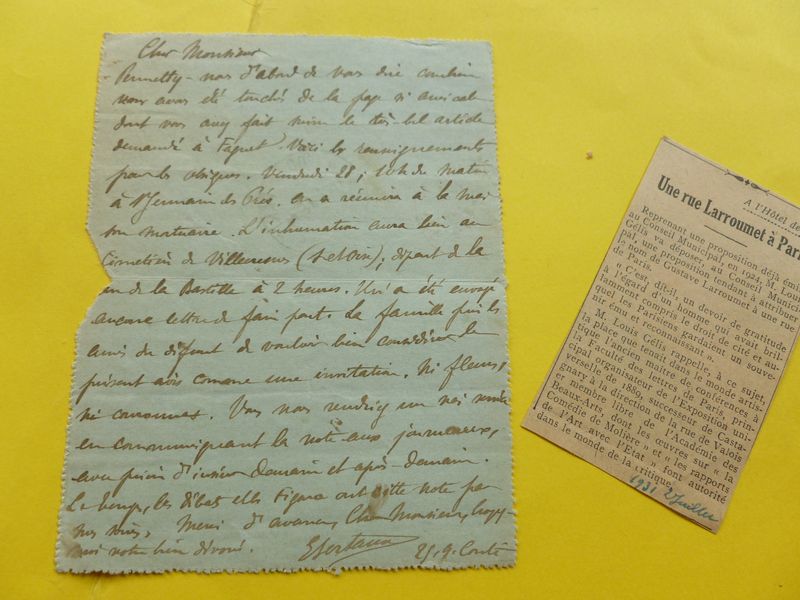 Cher Monsieur
Permettez-nous d'abord de vous dire combien
nous avons été touchés de la page si amicale
dont vous avez fait suivre le très bel article
demandé à Faguet. Voici les renseignements
pour les obsèques. Vendredi 28, 10h du matin
à St Germain des Prés. On se réunira à la mai
son mortuaire. L'inhumation aura lieu au
Cimetière de Villecresnes (S. et Oise), départ de la
de la Bastille à 2 heures. Il n'a été envoyé
aucune lettre de faire part. La famille prie les
amis du défunt de vouloir bien considérer le
présent avis comme une invitation. Ni fleurs,
ni couronnes. Vous nous rendriez un vrai service
en communiquant la note aux journaux,
avec prière d'insérer demain et après-demain.
Le Temps, les Débats et le Figaro ont cette note par
nos soins. Merci d'avance, Cher Monsieur, croyez-
moi votre bien dévoué.
A l'Hôtel de
Une rue Larroumet à Pari
Reprenant une proposition déjà émi
au Conseil Municipal, en 1924, M. Loui
Gélis va déposer, au Conseil Munici
pal, une proposition tendant à attribuer
le nom de Gustave Larroumet à une rue
de Paris.
« C'est, dit-il, un devoir de gratitude
à l'égard d'un homme qui avait bril-
lamment conquis le droit de cité et au-
quel les Parisiens gardaient un souve-
nir ému et reconnaissant ».
M. Louis Gélis, rappelle, à ce sujet,
la place que tenait dans le monde artis-
tique l'ancien maître de conférences à
la Faculté des Lettres de Paris, prin-
cipal organisateur de l'Exposition uni-
verselle de 1889, successeur de Casta-
gnary à la direction de la rue de Valois
et membre libre de l'Académie des
Beaux-Arts, dont les œuvres sur « la
Comédie de Molière » et « les rapports
de l'Art avec l'Etat » font autorité
dans le monde de la critique.
1931 2 Juillet